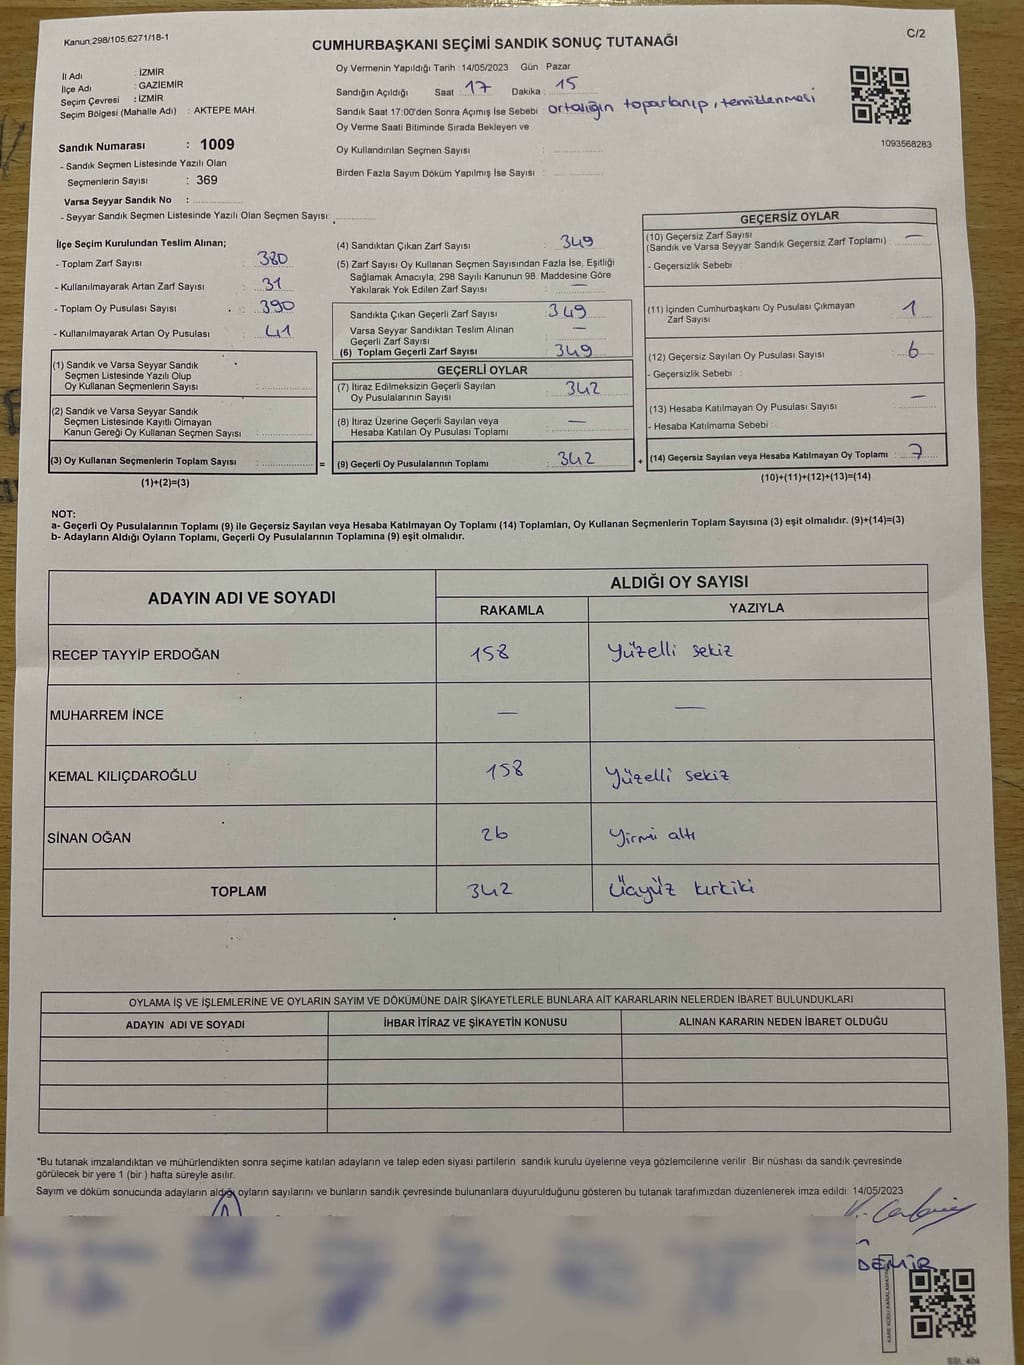 Kanun:298/105,6271/18-1
C/2
CUMHURBAŞKANI SEÇİMİ SANDIK SONUÇ TUTANAĞI
İl Adı : İZMİR
İlçe Adı : GAZİEMİR
Seçim Çevresi : İZMİR
Seçim Bölgesi (Mahalle Adı) : AKTEPE MAH.
Oy Vermenin Yapıldığı Tarih : 14/05/2023 Gün : Pazar
Sandığın Açıldığı Saat : 17 Dakika : 15
Sandık Saat 17:00'den Sonra Açımış İse Sebebi : ortalığın toparlanıp, temizlenmesi
Oy Verme Saati Bitiminde Sırada Bekleyen ve
Oy Kullandırılan Seçmen Sayısı :
Birden Fazla Sayım Döküm Yapılmış İse Sayısı :
1093568283
Sandık Numarası : 1009
- Sandık Seçmen Listesinde Yazılı Olan
Seçmenlerin Sayısı : 369
Varsa Seyyar Sandık No :
- Seyyar Sandık Seçmen Listesinde Yazılı Olan Seçmen Sayısı:
İlçe Seçim Kurulundan Teslim Alınan;
- Toplam Zarf Sayısı : 380
- Kullanılmayarak Artan Zarf Sayısı : 31
- Toplam Oy Pusulası Sayısı : 390
- Kullanılmayarak Artan Oy Pusulası : 41
(1) Sandık ve Varsa Seyyar Sandık
Seçmen Listesinde Yazılı Olup
Oy Kullanan Seçmenlerin Sayısı :
(2) Sandık ve Varsa Seyyar Sandık
Seçmen Listesinde Kayıtlı Olmayan
Kanun Gereği Oy Kullanan Seçmen Sayısı :
(3) Oy Kullanan Seçmenlerin Toplam Sayısı :
(1)+(2)=(3)
(4) Sandıktan Çıkan Zarf Sayısı : 349
(5) Zarf Sayısı Oy Kullanan Seçmen Sayısından Fazla İse, Eşitliği
Sağlamak Amacıyla; 298 Sayılı Kanunun 98. Maddesine Göre
Yakılarak Yok Edilen Zarf Sayısı : —
Sandıkta Çıkan Geçerli Zarf Sayısı : 349
Varsa Seyyar Sandıktan Teslim Alınan
Geçerli Zarf Sayısı : —
(6) Toplam Geçerli Zarf Sayısı : 349
GEÇERLİ OYLAR
(7) İtiraz Edilmeksizin Geçerli Sayılan
Oy Pusulalarının Sayısı : 342
(8) İtiraz Üzerine Geçerli Sayılan veya
Hesaba Katılan Oy Pusulası Toplamı : —
= (9) Geçerli Oy Pusulalarının Toplamı : 342 +
GEÇERSİZ OYLAR
(10) Geçersiz Zarf Sayısı
(Sandık ve Varsa Seyyar Sandık Geçersiz Zarf Toplamı) : —
- Geçersizlik Sebebi :
(11) İçinden Cumhurbaşkanı Oy Pusulası Çıkmayan
Zarf Sayısı : 1
(12) Geçersiz Sayılan Oy Pusulası Sayısı : 6
- Geçersizlik Sebebi :
(13) Hesaba Katılmayan Oy Pusulası Sayısı : —
- Hesaba Katılmama Sebebi :
(14) Geçersiz Sayılan veya Hesaba Katılmayan Oy Toplamı : 7
(10)+(11)+(12)+(13)=(14)
NOT:
a- Geçerli Oy Pusulalarının Toplamı (9) ile Geçersiz Sayılan veya Hesaba Katılmayan Oy Toplamı (14) Toplamları, Oy Kullanan Seçmenlerin Toplam Sayısına (3) eşit olmalıdır. (9)+(14)=(3)
b- Adayların Aldığı Oyların Toplamı, Geçerli Oy Pusulalarının Toplamına (9) eşit olmalıdır.
ADAYIN ADI VE SOYADI
ALDIĞI OY SAYISI
RAKAMLA YAZIYLA
RECEP TAYYİP ERDOĞAN 158 Yüzelli sekiz
MUHARREM İNCE — —
KEMAL KILIÇDAROĞLU 158 Yüzelli sekiz
SİNAN OĞAN 26 Yirmi altı
TOPLAM 342 Üçyüz kırkiki
OYLAMA İŞ VE İŞLEMLERİNE VE OYLARIN SAYIM VE DÖKÜMÜNE DAİR ŞİKAYETLERLE BUNLARA AİT KARARLARIN NELERDEN İBARET BULUNDUKLARI
ADAYIN ADI VE SOYADI İHBAR İTİRAZ VE ŞİKAYETİN KONUSU ALINAN KARARIN NEDEN İBARET OLDUĞU
*Bu tutanak imzalandıktan ve mühürlendikten sonra seçime katılan adayların ve talep eden siyasi partilerin sandık kurulu üyelerine veya gözlemcilerine verilir Bir nüshası da sandık çevresinde
görülecek bir yere 1 (bir ) hafta süreyle asılır.
Sayım ve döküm sonucunda adayların aldığı oyların sayılarını ve bunların sandık çevresinde bulunanlara duyurulduğunu gösteren bu tutanak tarafımızdan düzenlenerek imza edildi. 14/05/2023
DEMİR
KARE KODU KARALAMAYINIZ